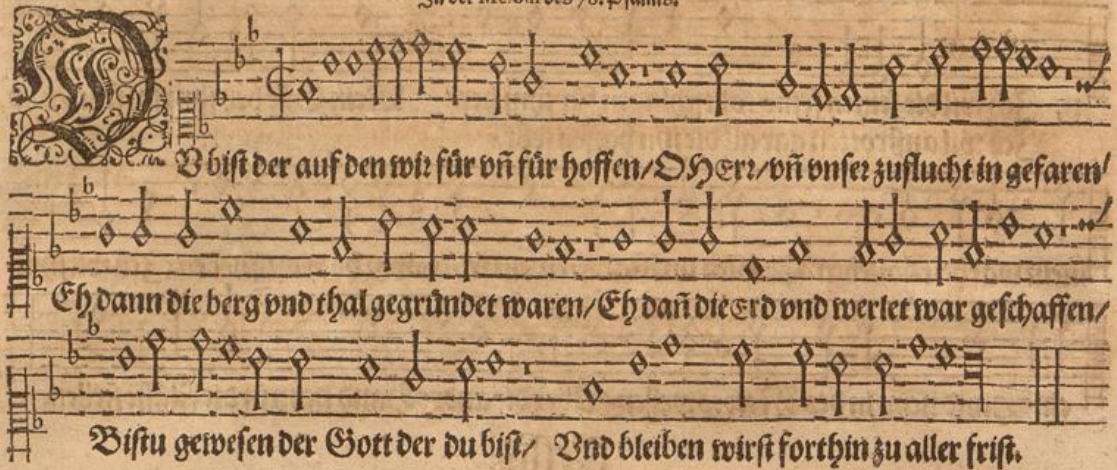 In der Melodi des 78. Psalms.
DV bist der auf den wir für vñ für hoffen/O HErr/vñ vnser zuflucht in gefaren/
Eh dann die berg vnd thal gegründet waren/Eh dañ die Erd vnd werlet war geschaffen/
Bistu gewesen der Gott der du bist/ Vnd bleiben wirst forthin zu aller frist.